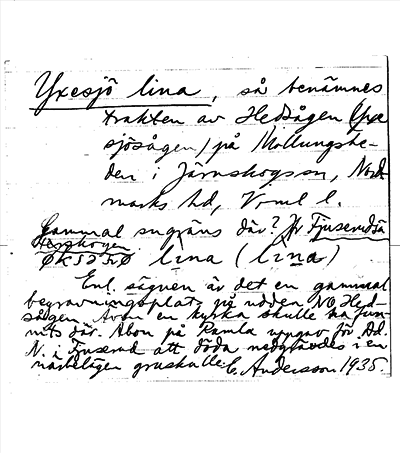 Yxesjö lina, så benämnes
trakten av Hedsågen (Yxe
sjösågen) på Mollungshe-
den i Järnskogs sn, Nord
marks hd, Vrml l.
Gammal sngräns där? Jfr Fjuserudsä
lina (lina)
Enl. sägnen är det en gammal
begravningsplats på udden NO Hed-
sågen. Även en kyrka skulle ha fun
nits där. Åbon på Ramla uppgav för Ad.
N. i Fjuserud att döda nedgrävdes i en
närbelägen gruskulle. C. Andersson 1935.